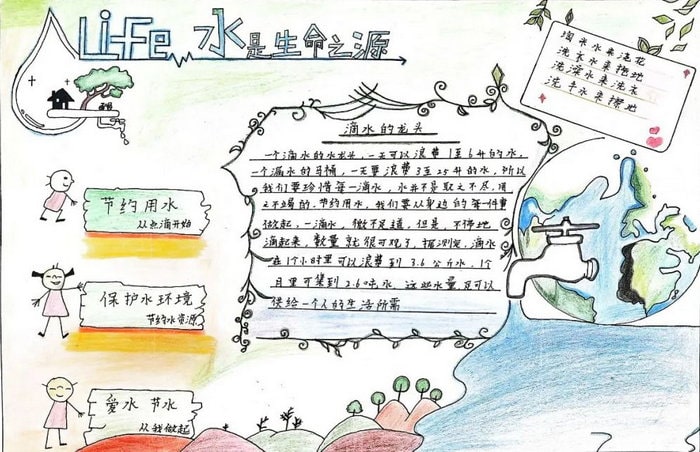 Life 水是生命之源
淘米水来浇花
洗衣水来拖地
洗澡水来洗衣
洗手水来擦地
滴水的龙头
一个滴水的水龙头，一天可以浪费1至6升的水，
一个漏水的马桶，一天要浪费3至25升的水，所以
我们要珍惜每一滴水，水并不是取之不尽，用
之不竭的。节约用水，我们要从身边的每一件事
做起，一滴水，微不足道，但是，不停地
滴起来，数量就很可观了，据测定，滴水
在1个小时里可以浪费到3.6公斤水，1个
月里可集到2.6吨水，这些水量足可以
供给一个人的生活所需
节约用水
从点滴开始
保护水环境
节约水资源
爱水 节水
从我做起